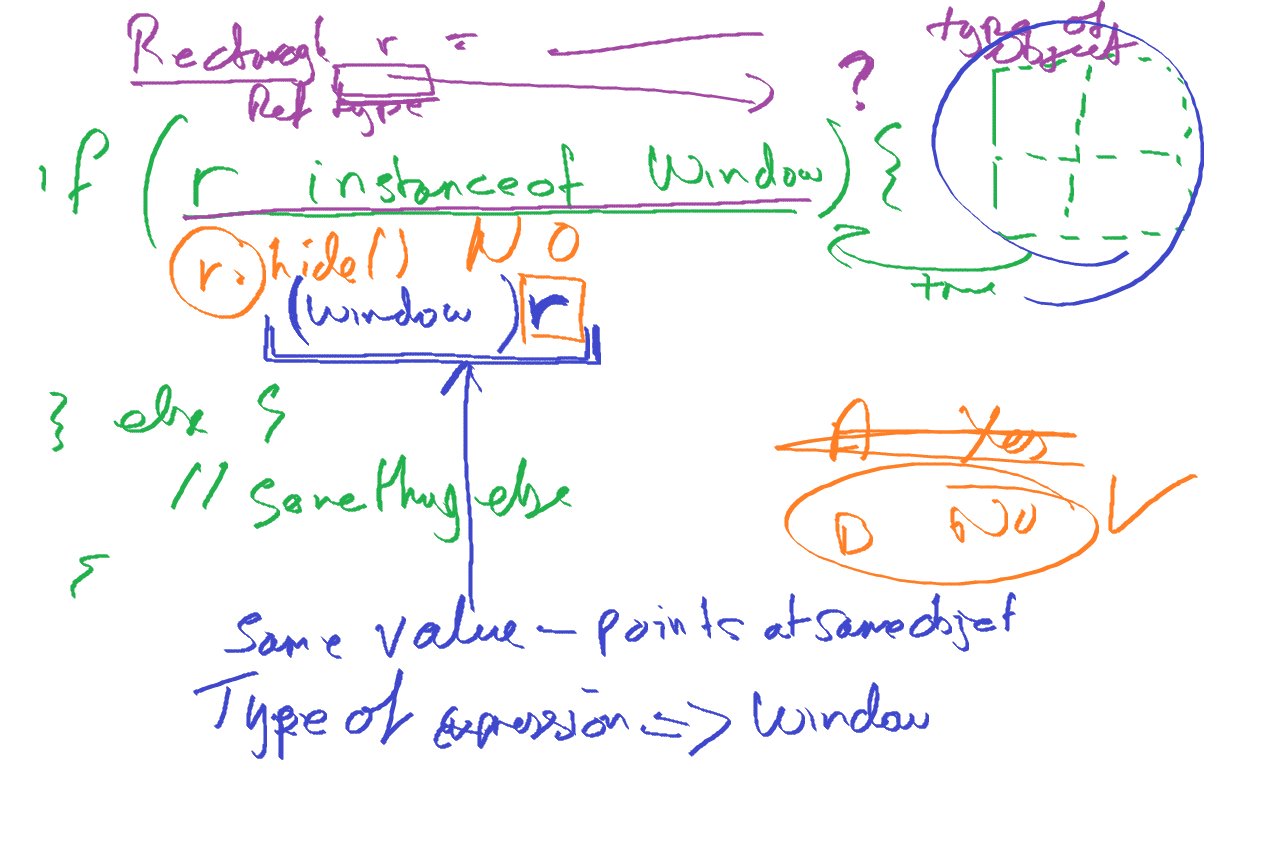 Rectangl r =
type of
object
Ref type
?
if ( r instanceof Window ) {
r. hide() NO
true
(Window) r
} else {
// something else
A Yes
B No
}
Same value - points at same object
Type of expression => Window